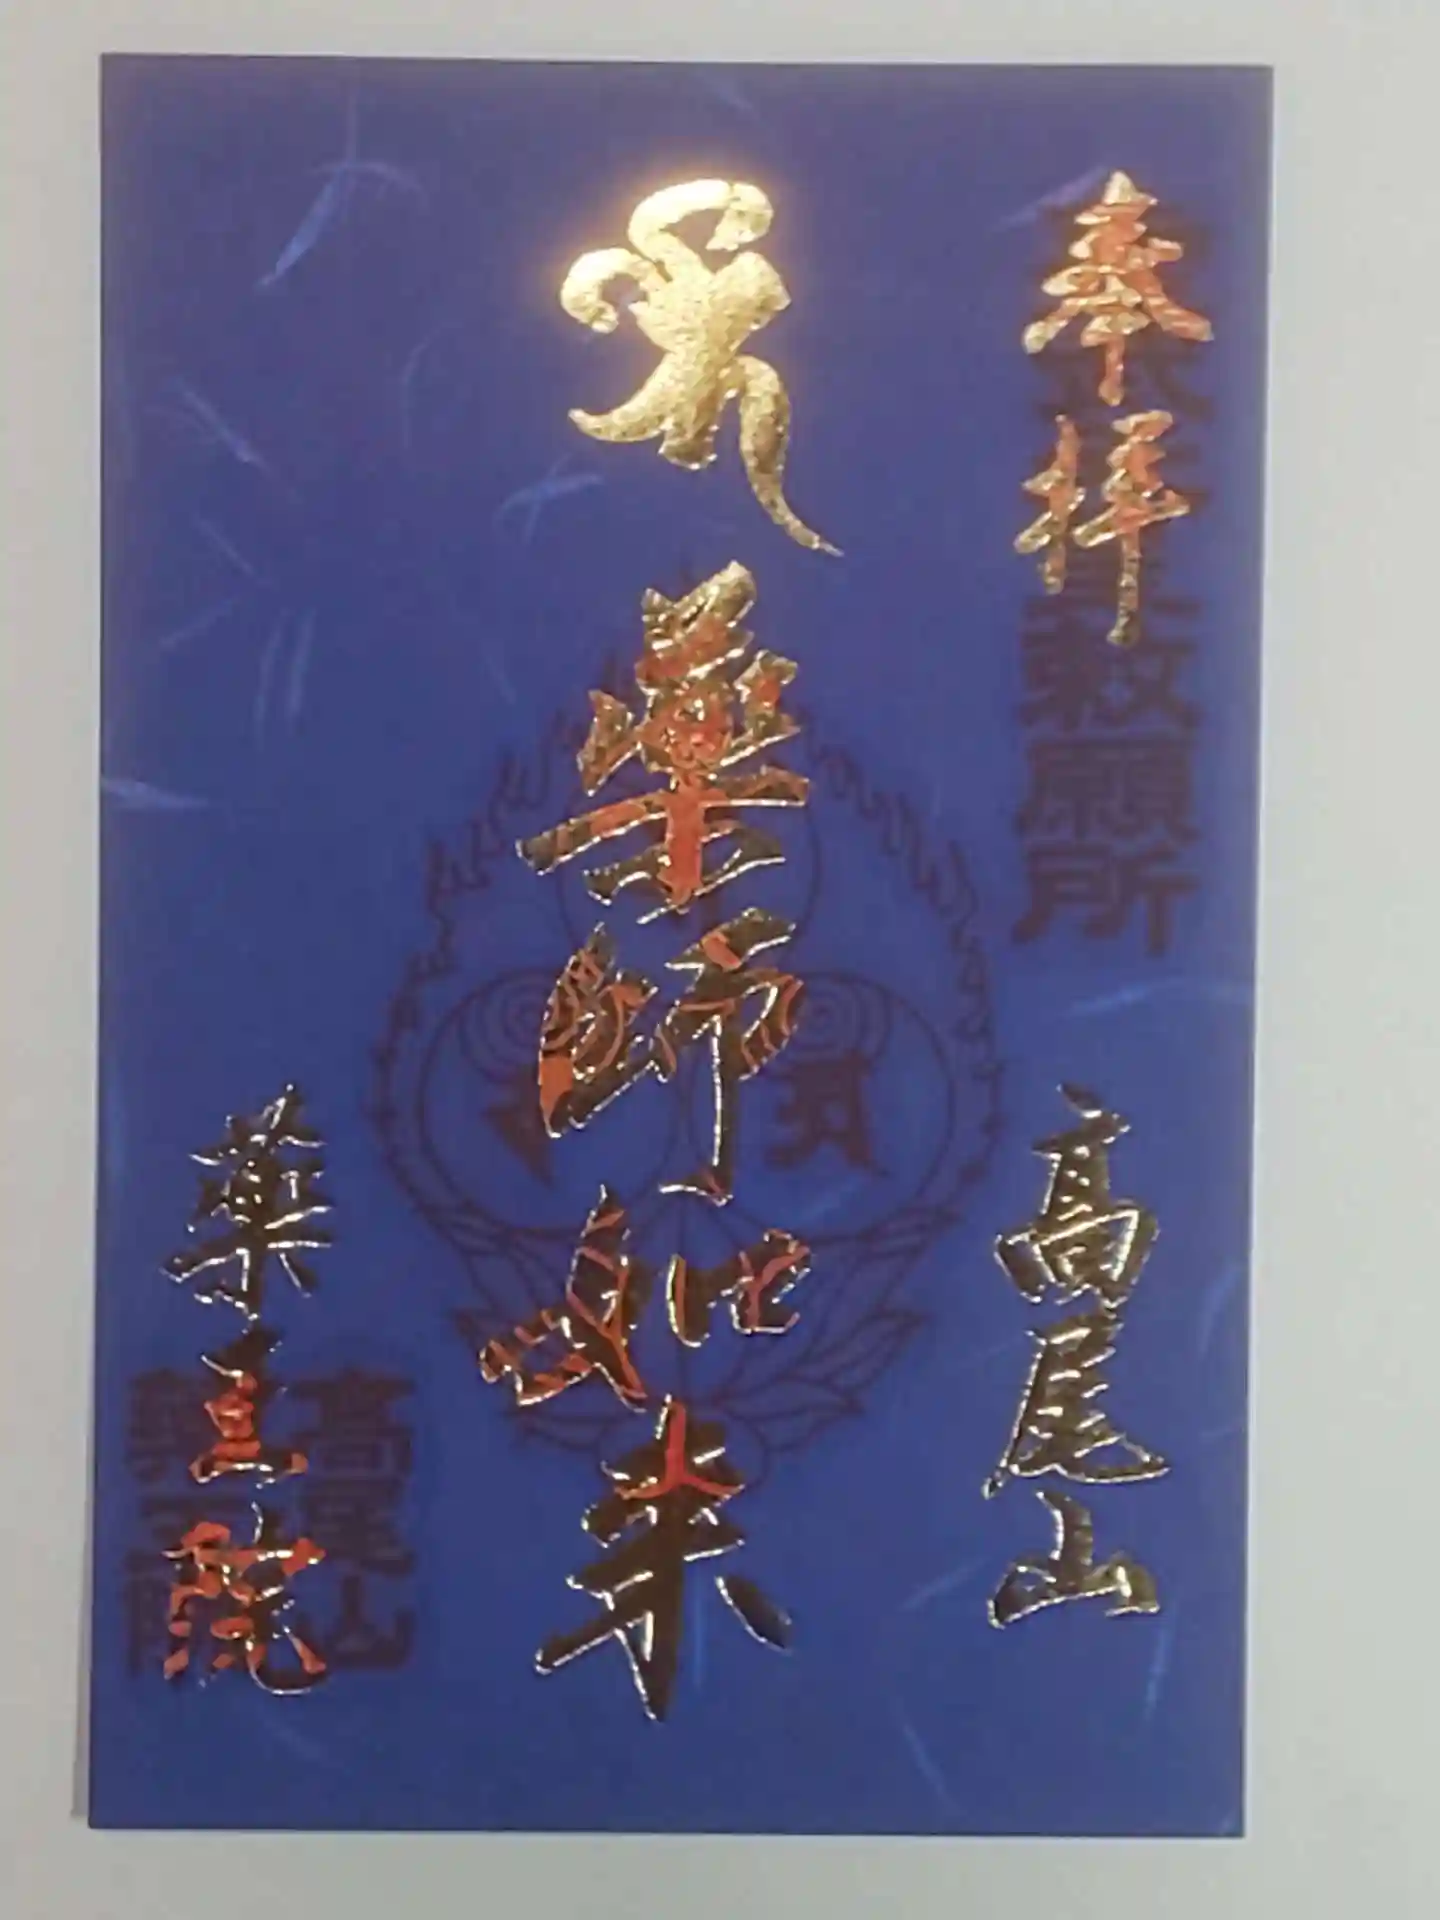 奉拝
高尾山
勅願所
薬師如来
高尾山
薬王院
薬王院